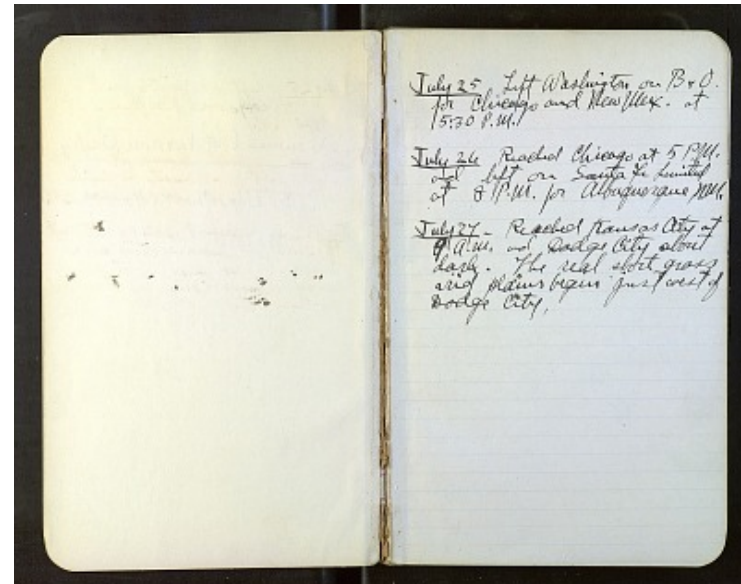 July 25 Left Washington on B & O.
for Chicago and New Mex. at
5:30 P.M.
July 26 Reached Chicago at 5 P.M.
and left on Santa Fe Limited
at 8 P.M. for Albuquerque N.M.
July 27 - Reached Kansas City at
9 A.M. and Dodge City about
dark. The real short grass
arid plains begin just west of
Dodge City.